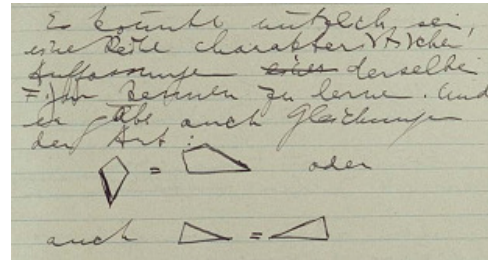 Es könnte nützlich sein,
eine Reihe charakteristischer
Auffassungen derselben
kennen zu lernen. Und
es gäbe auch Gleichungen
der Art:
= oder
auch =